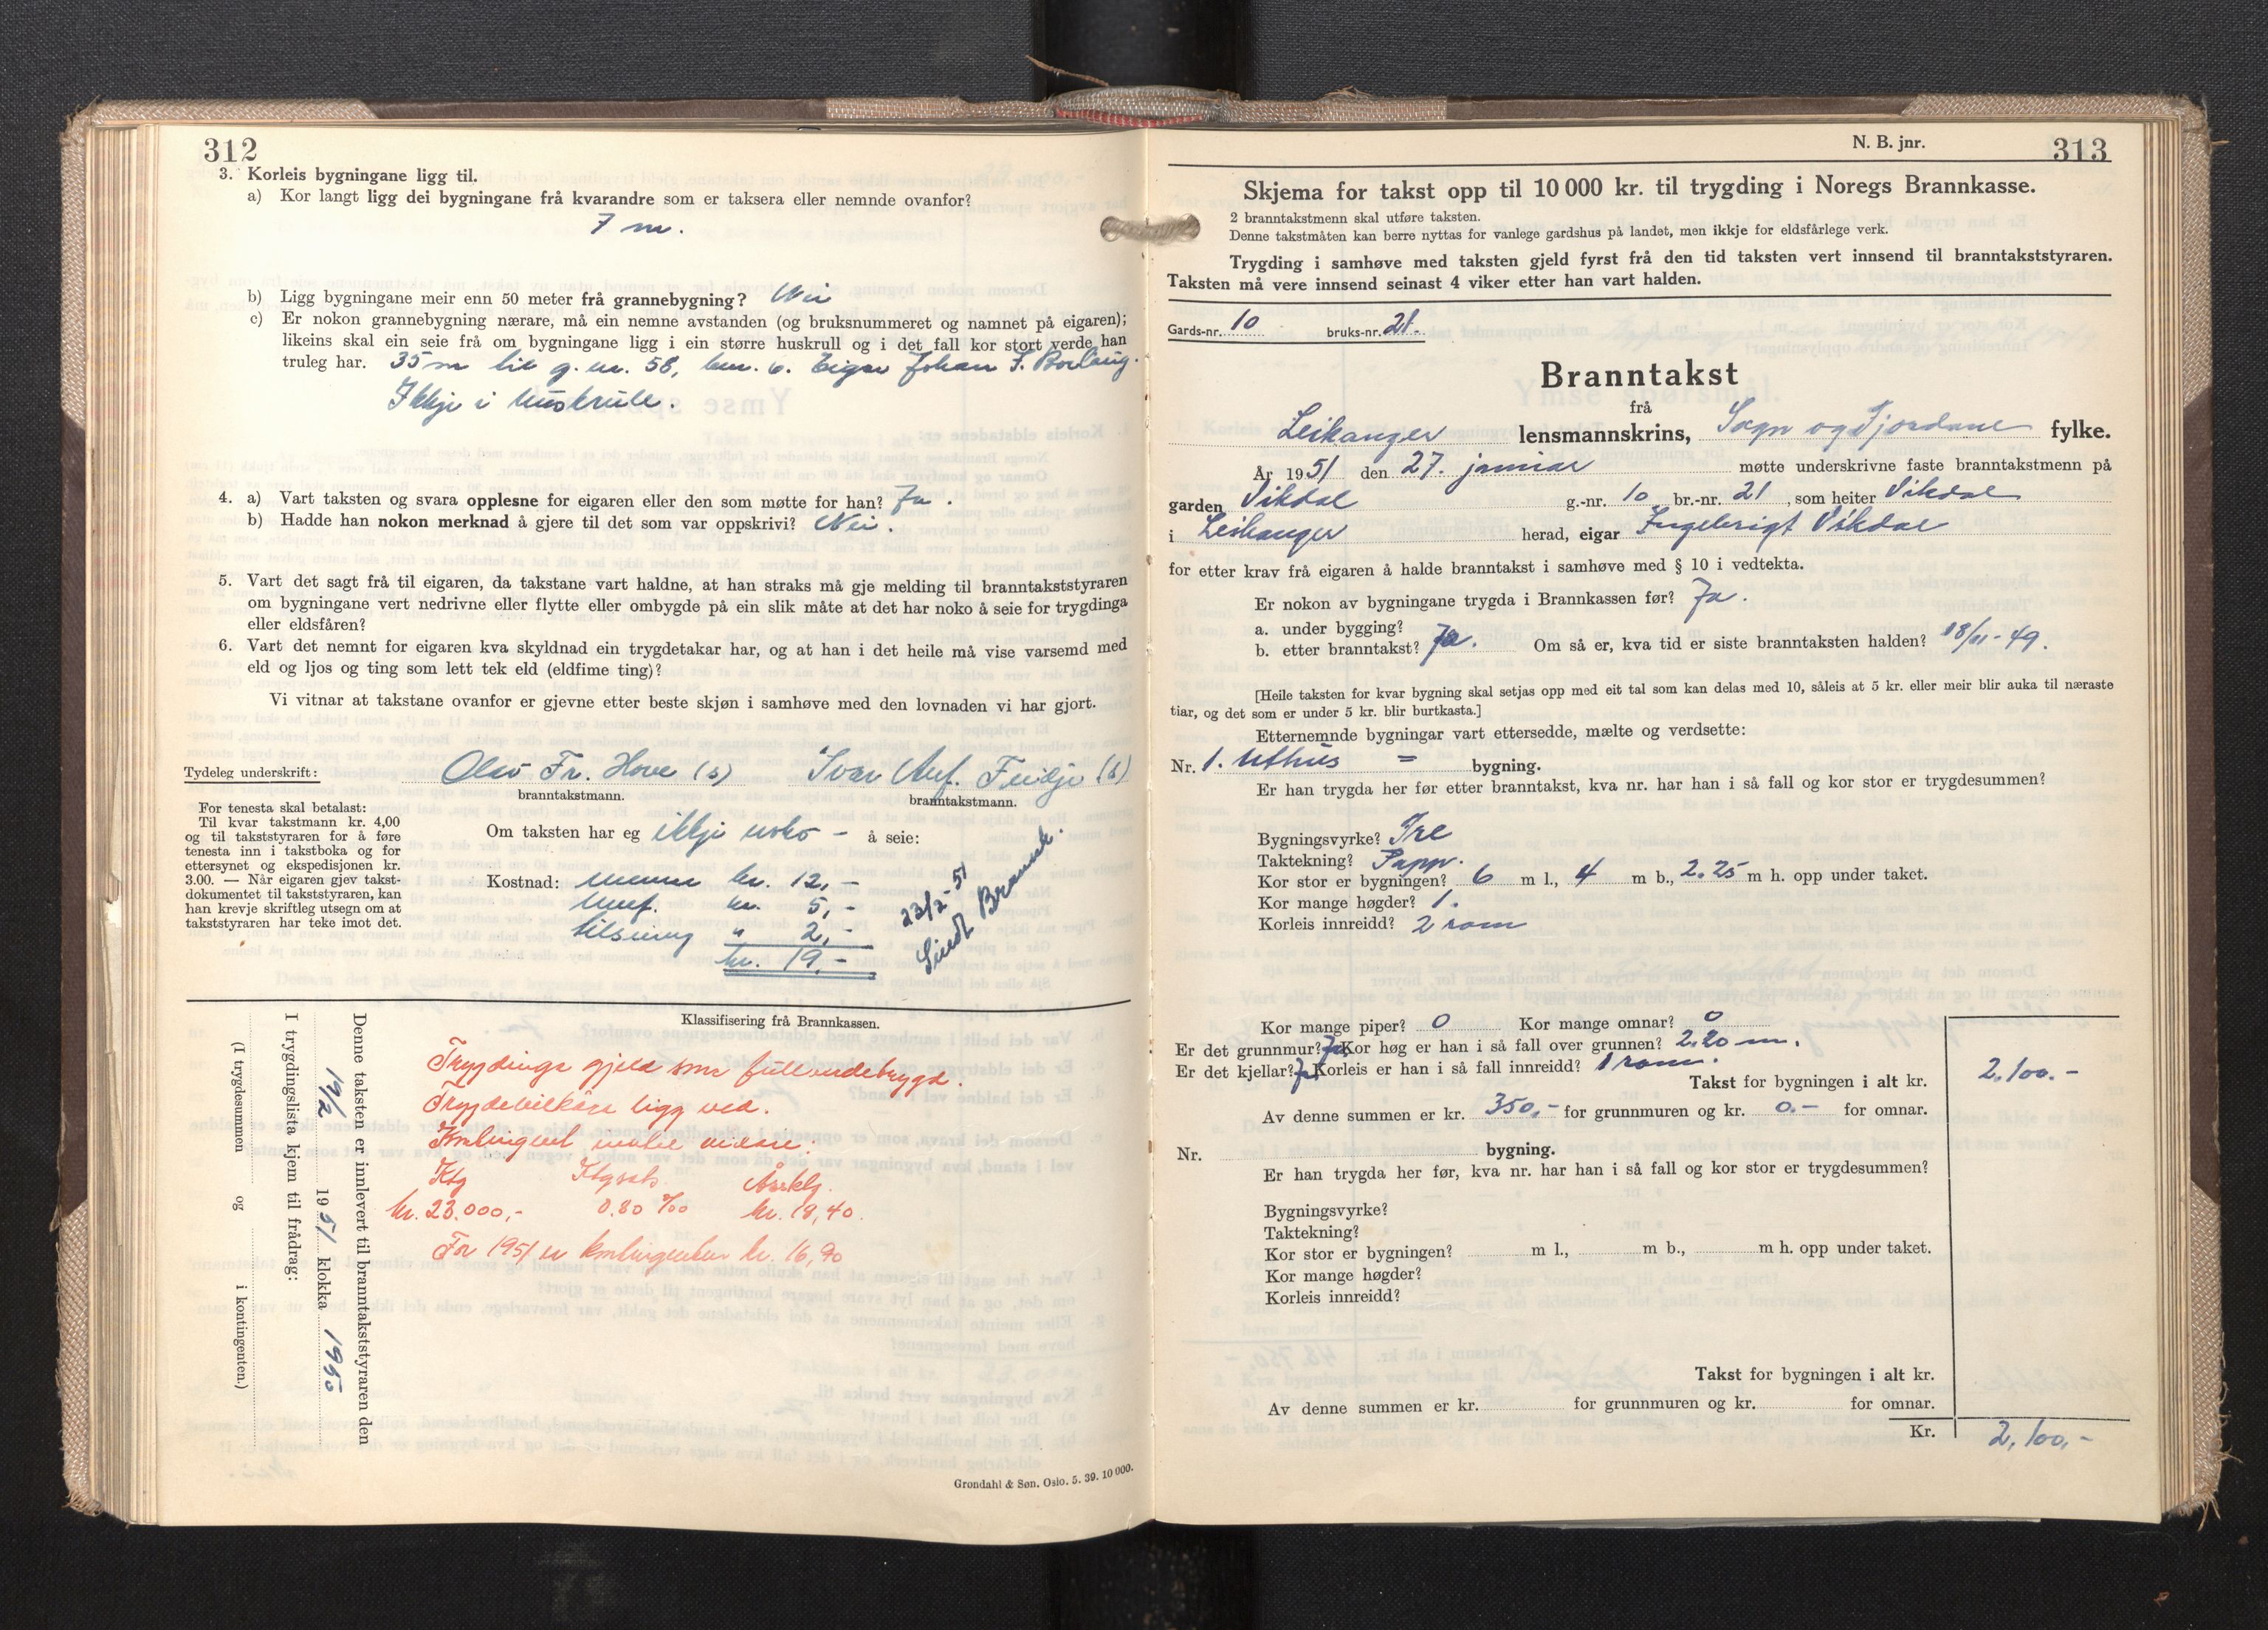 312
3. Korleis bygningane ligg til.
a) Kor langt ligg dei bygningane frå kvarandre som er taksera eller nemnde ovanfor?
7 m.
b) Ligg bygningane meir enn 50 meter frå grannebygning? Nei
c) Er nokon grannebygning nærare, må ein nemne avstanden (og bruksnummeret og namnet på eigaren);
likeins skal ein seie frå om bygningane ligg i ein større huskrull og i det fall kor stort verde han
truleg har. 35 m til g. nr. 58, bnr. 6. Eigar Johan J. Borlaug.
Ikkje i huskrull.
4. a) Vart taksten og svara opplesne for eigaren eller den som møtte for han? Ja.
b) Hadde han nokon merknad å gjere til det som var oppskrivi? Nei.
5. Vart det sagt frå til eigaren, da takstane vart haldne, at han straks må gje melding til branntakststyraren
om bygningane vert nedrivne eller flytte eller ombygde på ein slik måte at det har noko å seie for trygdinga
eller eldsfåren?
6. Vart det nemnt for eigaren kva skyldnad ein trygdetakar har, og at han i det heile må vise varsemd med
eld og ljos og ting som lett tek eld (eldfime ting)?
Vi vitnar at takstane ovanfor er gjevne etter beste skjøn i samhøve med den lovnaden vi har gjort.
Tydeleg underskrift: Olav Fr. Hove (s) Ivar Anf. Feidje (s)
branntakstmann. branntakstmann.
For tenesta skal betalast:
Til kvar takstmann kr. 4,00
og til takststyraren for å føre
tenesta inn i takstboka og for
ettersynet og ekspedisjonen kr.
3.00. — Når eigaren gjev takst-
dokumentet til takststyraren, kan
han krevje skriftleg utsegn om at
takststyraren har teke imot det.
Om taksten har eg ikkje noko - å seie:
Kostnad: menn kr. 12,-
kr. 5,-
tilsining " 2,-
kr. 19,-
23/2-51
Sendt Brannk.
Klassifisering frå Brannkassen.
Trygdinga gjeld som fullendebygd.
Trygdevilkåra ligg ved.
Kontingent inntil vidare:
Ktg Ktgsats Årsktg.
kr. 23.000,- 0.80 ‰ kr. 18,40.
For 1951 er kontingenten kr. 16,90
Denne taksten er innlevert til branntakststyraren den
19/2 1951 klokka 1955
I trygdingslista kjem til frådrag:
(I trygdesummen og i kontingenten.)
Grøndahl & Søn. Oslo. 5. 39. 10 000.
N. B. jnr. 313
Skjema for takst opp til 10 000 kr. til trygding i Noregs Brannkasse.
2 branntakstmenn skal utføre taksten.
Denne takstmåten kan berre nyttas for vanlege gardshus på landet, men ikkje for eldsfårlege verk.
Trygding i samhøve med taksten gjeld fyrst frå den tid taksten vert innsend til branntakststyraren.
Taksten må vere innsend seinast 4 viker etter han vart halden.
Gards-nr. 10 bruks-nr. 21.
Branntakst
frå
Leikanger lensmannskrins, Sogn og Fjordane fylke.
År 1951 den 27. januar møtte underskrivne faste branntakstmenn på
garden Vikdal g.-nr. 10 br.-nr. 21, som heiter Vikdal
i Leikanger herad, eigar Ingebrigt Vikdal
for etter krav frå eigaren å halde branntakst i samhøve med § 10 i vedtekta.
Er nokon av bygningane trygda i Brannkassen før? Ja.
a. under bygging?
b. etter branntakst? Ja. Om så er, kva tid er siste branntaksten halden? 18/11-49.
[Heile taksten for kvar bygning skal setjas opp med eit tal som kan delas med 10, såleis at 5 kr. eller meir blir auka til næraste
tiar, og det som er under 5 kr. blir burtkasta.]
Etternemnde bygningar vart ettersedde, mælte og verdsette:
Nr. 1. Uthus = bygning.
Er han trygda her før etter branntakst, kva nr. har han i så fall og kor stor er trygdesummen?
Bygningsvyrke? Tre
Taktekning? Papp.
Kor stor er bygningen? 6 m l., 4 m b., 2.25 m h. opp under taket.
Kor mange høgder? 1.
Korleis innreidd? 2 rom
Kor mange piper? 0 Kor mange omnar? 0
Er det grunnmur? Ja Kor høg er han i så fall over grunnen? 2.20 m.
Er det kjellar? Ja Korleis er han i så fall innreidd? 1 rom.
Takst for bygningen i alt kr. 2.100.-
Av denne summen er kr. 350,- for grunnmuren og kr. 0.- for omnar.
Nr. bygning.
Er han trygda her før, kva nr. har han i så fall og kor stor er trygdesummen?
Bygningsvyrke?
Taktekning?
Kor stor er bygningen? m l., m b., m h. opp under taket.
Kor mange høgder?
Korleis innreidd?
Takst for bygningen i alt kr.
Av denne summen er kr. for grunnmuren og kr. for omnar.
Kr. 2,100,-